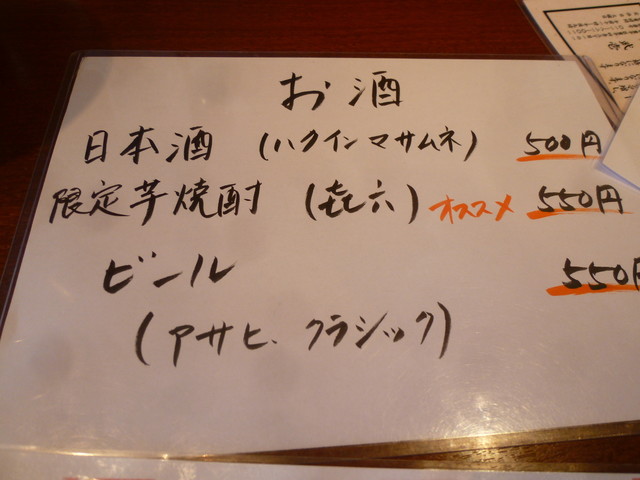 お酒
日本酒 (ハクインマサムネ) 500円
限定芋焼酎 (㐂六) オススメ 550円
ビール 550円
(アサヒ、クラシック)